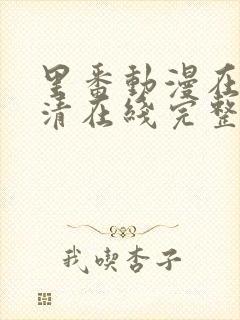 里番動漫在
清在綫完整
我喫杏子